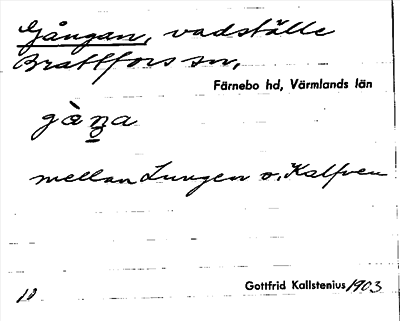 Gångan, vadställe
Brattfors sn,
Färnebo hd, Värmlands län
gàŋa
mellan Lungen o. Kalfven
10
Gottfrid Kallstenius 1903